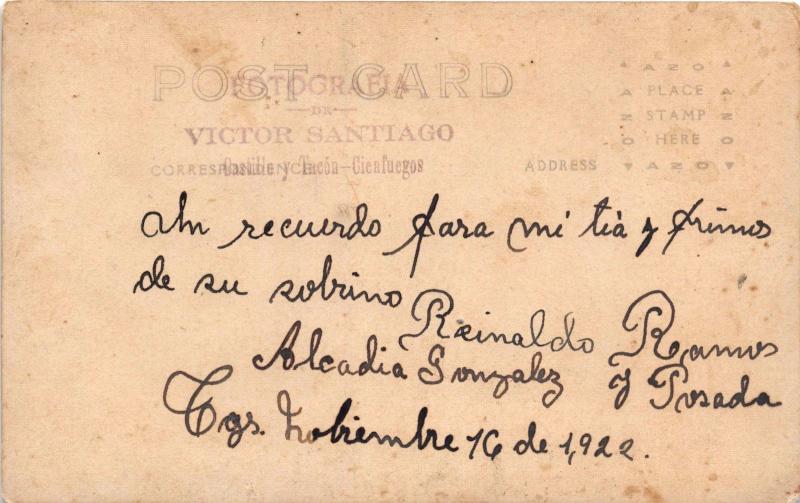 POST CARD
FOTOGRAFIA
DE
VICTOR SANTIAGO
Castillo y Tacón-Cienfuegos
CORRESPONDENCE
ADDRESS
AZO
PLACE
STAMP
HERE
AZO
Un recuerdo para mi tia y primos
de su sobrino
Reinaldo Ramos
Alcadia Gonzalez y Posada
Cgs. Nobiembre 16 de 1,922.